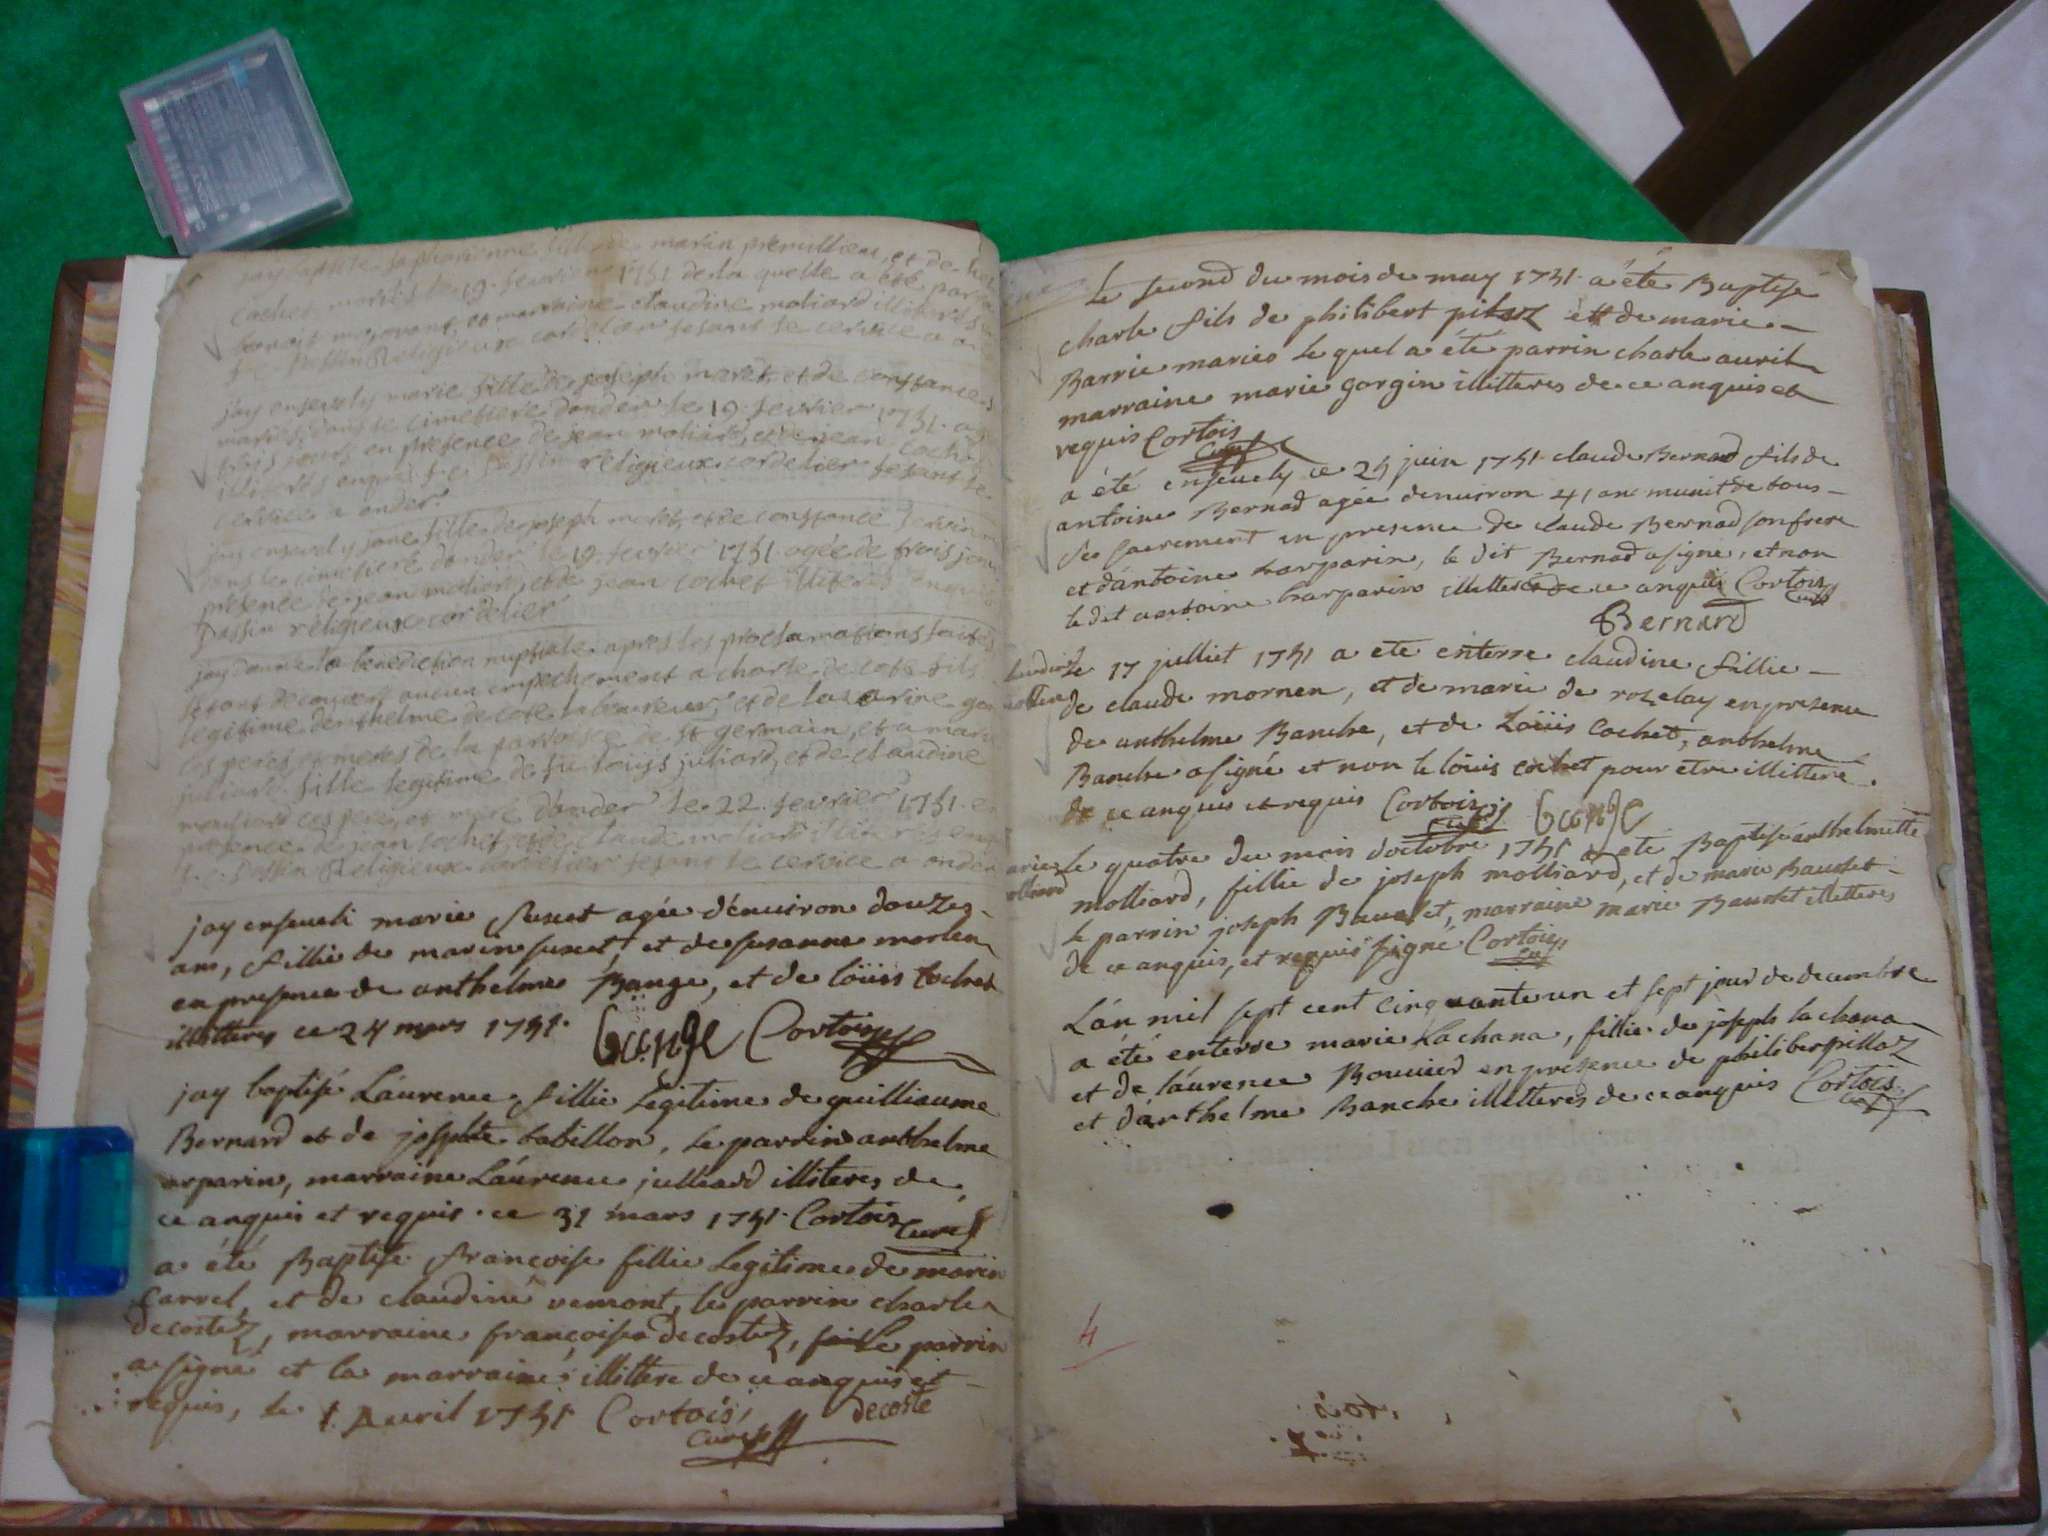 jay baptisé marin premillieu, et de
cochet mariés le 19. fevrier 1751 de la quelle a été
et marraine claudine moliard illiterés
religieux cordelier fesant le cervice a
jay ensevely marie fille de joseph maret, et de constance
mariés dans le cimetiere d'ander le 19. fevrier 1751.
trois jours en presence de jean moliard, et de jean coch
illiterés enquis f. c. Passin réligieux cordelier fesant le
cervice a ander.
jay ensevely fille de joseph maret, et de constance
dans le cimetiere dander le 19. fevrier 1751. agée de trois jours
presence de jean moliard, et de jean cochet illiterés enquis
Passin réligieux cordelier
jay donné la bénédiction nuptiale apres les proclamations faites
sans decouvert aucun empechement a charle decote fils
legitime d'enthelme decote laboureur, et de
ces peres et meres de la parroisse de st germain, et a marie
juliard fille legitime de fu louijs juliard, et de claudine
moulliard ces pere, et mere d'ander le 22. fevrier 1751. en
presence de jean cochet, et de claude moliard illiterés enq
f. c. Passin Réligieux cordelier fesant le cervice a ander
jay enseveli marie suset agée d'environ douzes
ans, fillie de marin suset, et de susanne morlen
en presence de anthelme Bange, et de loüis cochet
illitteres ce 24 mars 1751. bange Cortois
jay baptisé Laurence fillie Legitime de guilliaume
Bernard et de josephte babillon, le parrin anthelme
arparin, marraine Laurence julliard illiteres de
ce anquis et requis. ce 31 mars 1751. Cortois Curé
a été Baptisé françoise fillie Legitime de marin
Carrel, et de claudine vemont, le parrin charle
decostez, marraine françoise decostez, le parrin
a signé et la marraine illittere de ce anquis et
requis, le 1. Avril 1751 Cortois decoste
curé
Le second du mois de may 1751. a été Baptisé
charle fils de philibert piloz et de marie
Barrie mariés le quel a été parrin charle auril
marraine marie gorgin illitteres de ce anquis et
requis Cortois
Curé
a été ensevely ce 24 juin 1751. claude Bernad fils de
antoine Bernad agée denviron 41 an munit de tous
ses sacrement en presence de claude Bernad son frere
et dantoine harparin, le dit Bernad a signé, et non
le dit antoine harparin illitteré de ce anquis Cortois
Curé
Bernard
le 17 julliet 1751 a eté enterre claudine fillie
de claude mornen, et de marie de roselay en presence
de anthelme Banche, et de Loüis Cochet, anthelme
Banche a signé et non le loüis cochet pour etre illitteré
de ce anquis et requis Cortois bange
curé
le quatre du mois doctobre 1751 a eté Baptisé anthelmette
molliard, fillie de joseph molliard, et de marie Bauset
le parrin joseph Bauset, marraine marie Bauset illitteres
de ce anquis, et requis signé Cortois
curé
L'an mil sept cent cinquante un et sept jour de decembre
a été enterre marie Lachana, fillie de joseph lachana
et de laurence Bouvier en presence de philiber pilloz
et d'anthelme Banche illitteres de ce anquis Cortois
curé
4